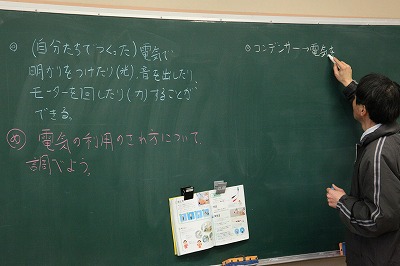 (自分たちでつくった)電気で
明かりをつけたり(光)、音を出したり、
モーターを回したり(力)することが
できる。
め 電気の利用のされ方について、
調べよう。
○コンデンサー→電気を